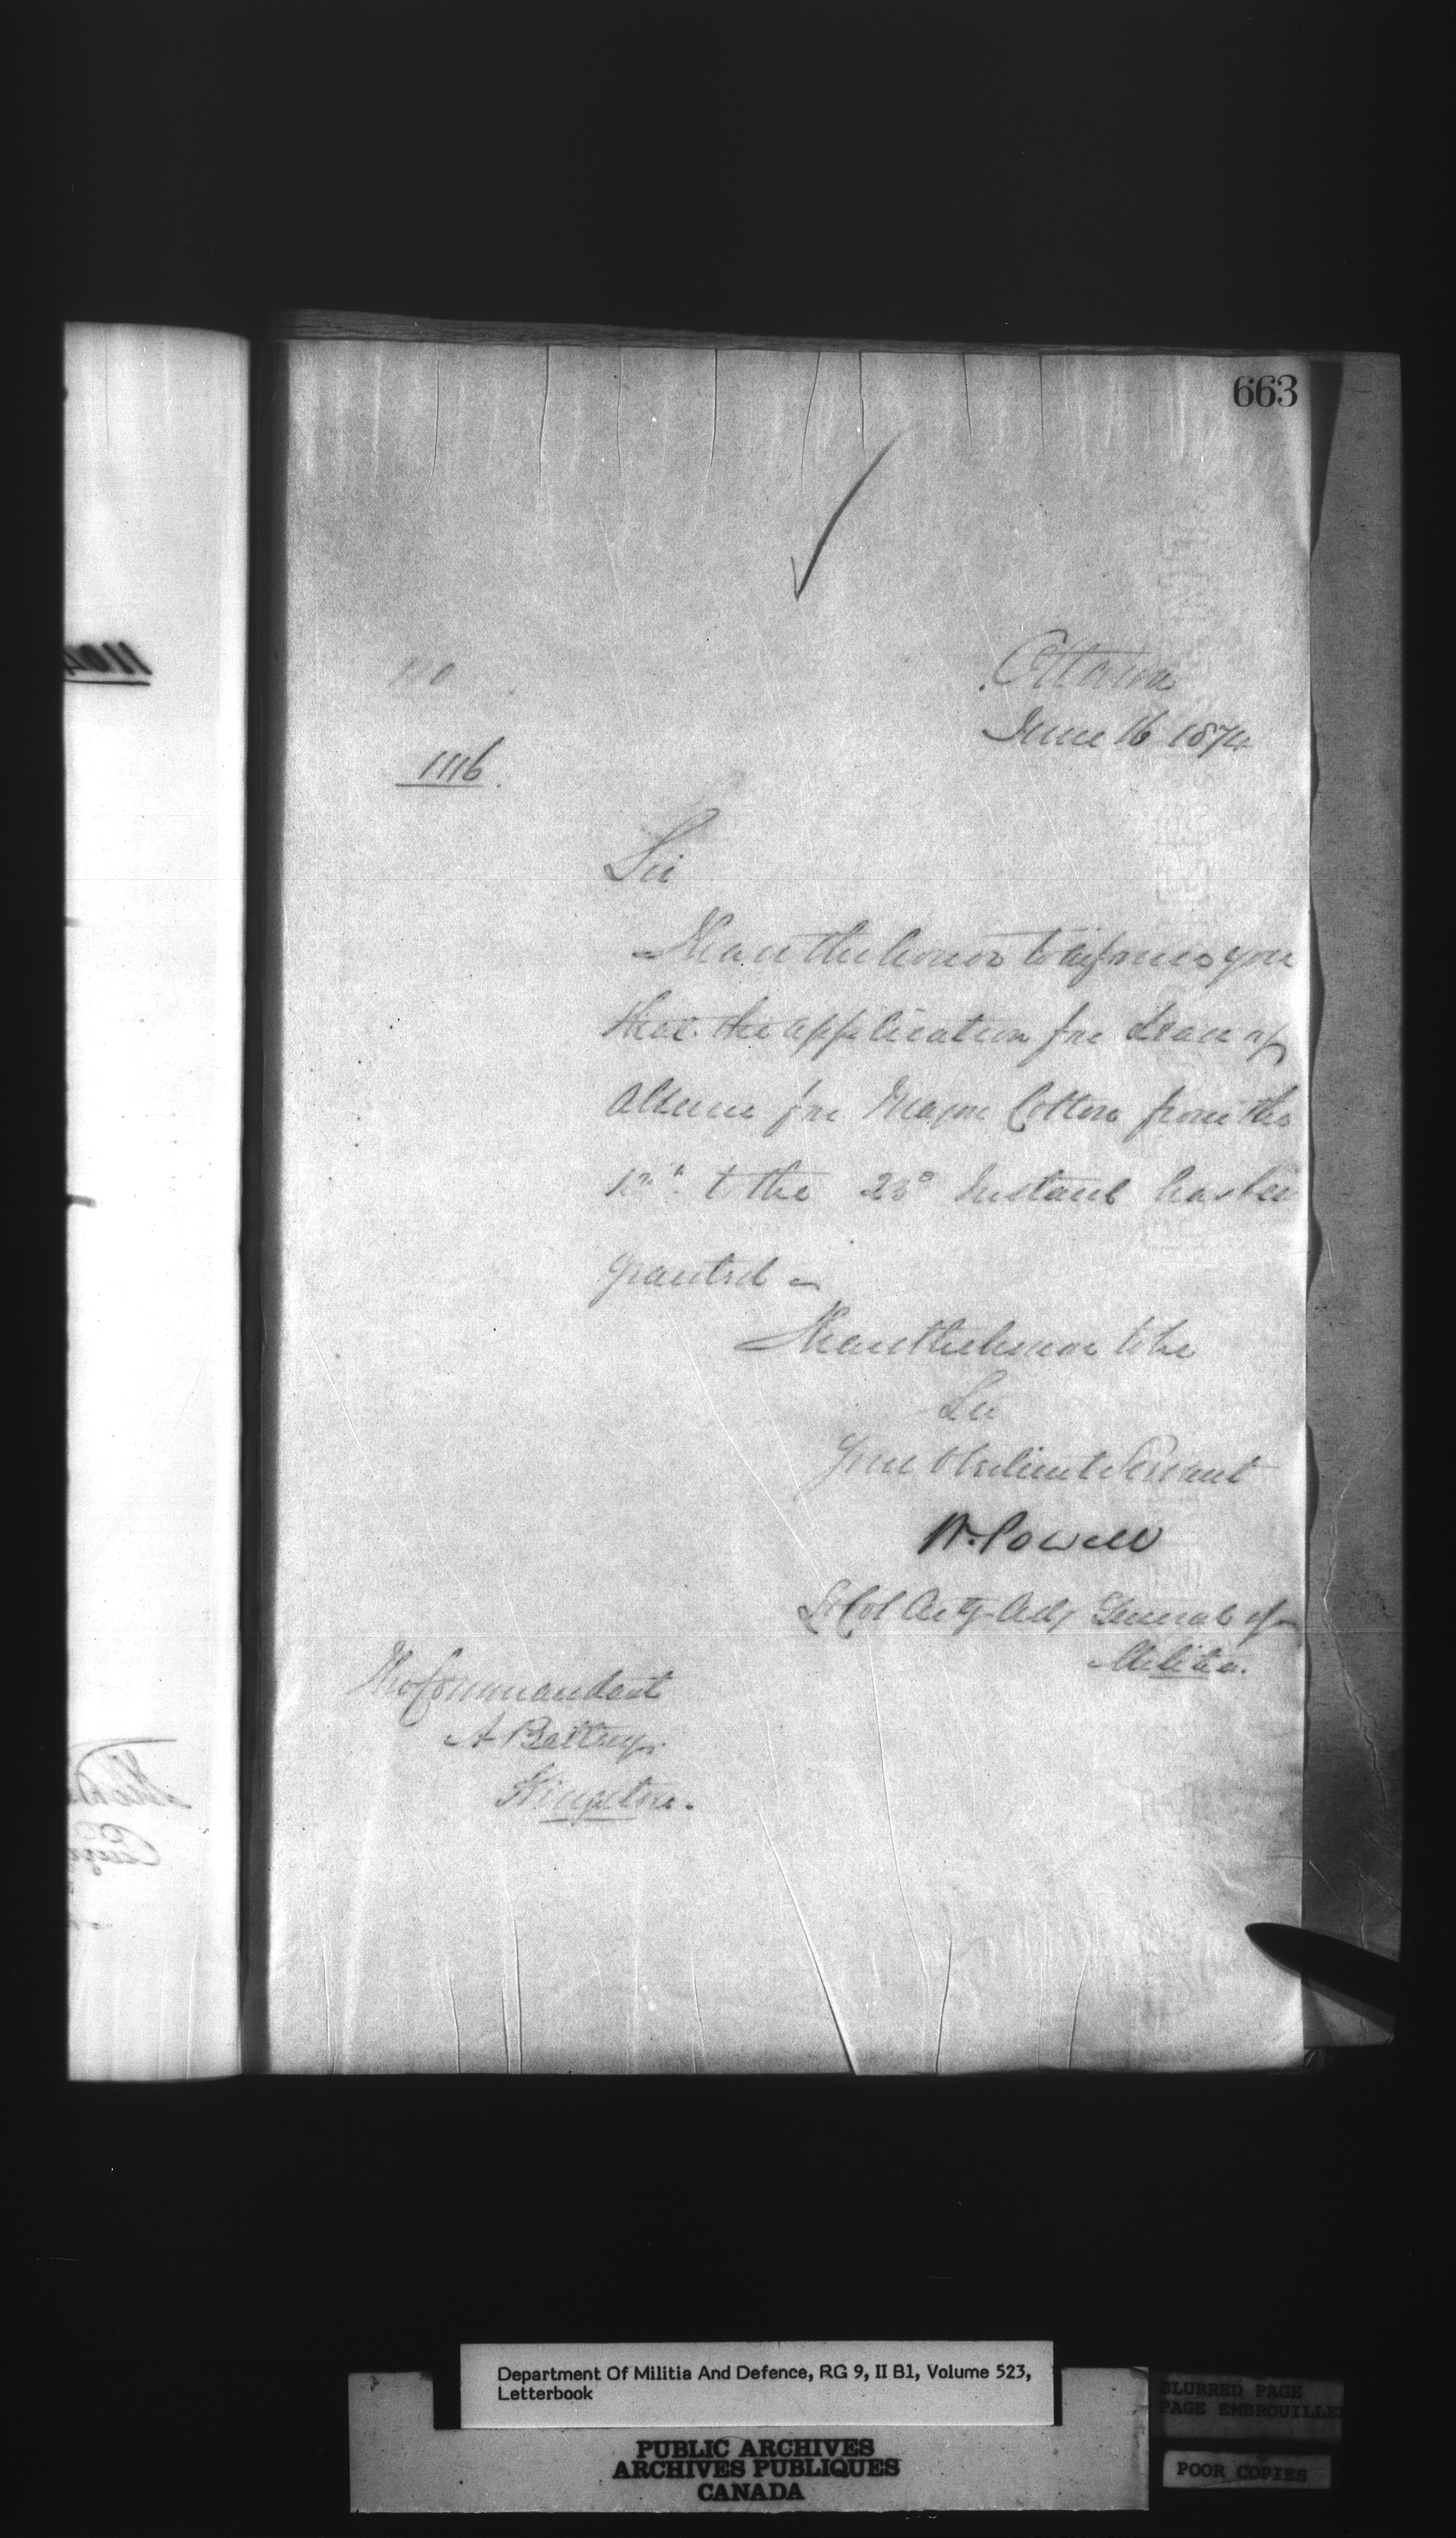 663
Ottawa
June 16 1874
1116.
Sir
I have the honor to inform you
that the application for leave of
absence for Major Cotton from the
to the 23d Instant has been
granted -
I have the honor to be
Sir
Your Obedient Servant
W. Powell
Lt Col Actg Adj General of
Militia.
The Commandant
A Battery.
Kingston.
Department Of Militia And Defence, RG 9, II B1, Volume 523,
Letterbook
PUBLIC ARCHIVES
ARCHIVES PUBLIQUES
CANADA
BLURRED PAGE
PAGE EMBROUILLEE
POOR COPIES